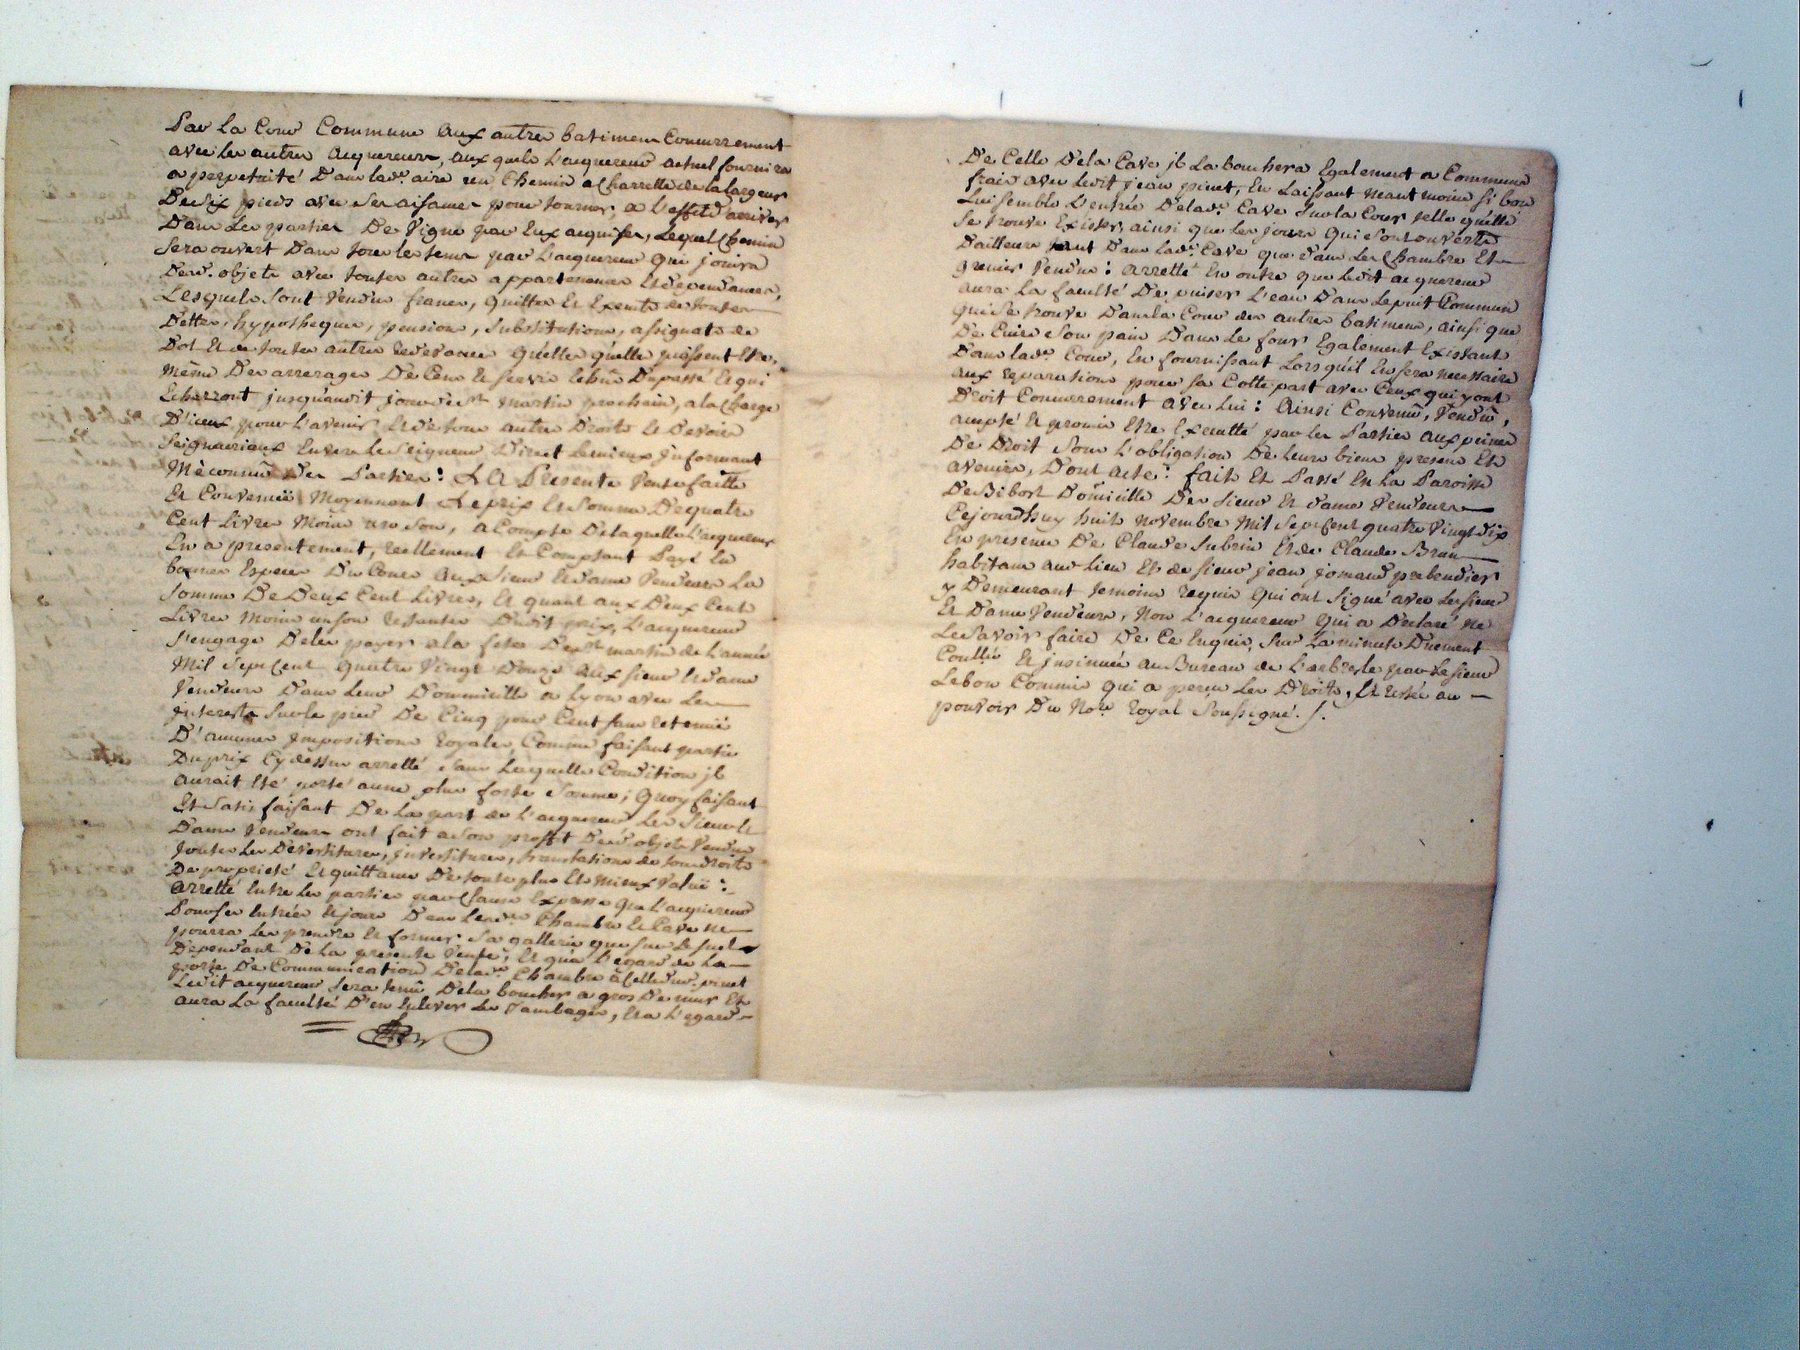 Par la Cour Commune aux autres batimens Concurrement
avec les autres acquereurs, auxquels l'acquereur actuel fournira
a perpetuité Dans lad.e aire un Chemin a Charrette de la largeur
De six pieds avec ses aisances pour tourner, a l'effet d'arriver
Dans les parties De Vigne par Eux acquises, Lequel Chemin
sera ouvert Dans tous les tems par l'acquereur qui jouira
Desd. objets avec toutes autres appartenances Et dependances,
Lesquels sont vendus francs, quittes Et Exemts de toutes
Dettes, hypotheques, pensions, substitutions, assignats de
Dot Et de toutes autres redevances quelles qu'elle puissent Etre,
même Des arrerages De Cens Et servis lebún Dupassé Et qui
Echerront jusquaudit jour de st. Martin prochain, a la Charge
D'iceux pour l'avenir Et de tous autres Droits Et Devoirs
seigneuriaux Envers le seigneur Direct Demieux Informant
Méconnúe Des Parties : LA Presente Vente faitte
Et Convenüe Moyennant Le prix Et somme De quatre
Cent Livres Moins un sou, a Compte De laquelle l'acquereur
En a presentement, reellement Et Comptant Payé En
bonnes Especes Du Cours Aux sieur Et dame Vendeurs La
somme De Deux Cent Livres, Et quant aux Deux Cent
Livres Moins un sou restantes Dudit prix, l'acquereur
s'engage Deles payer a la fete De st. martin de l'année
Mil sept Cent Quatre Vingt Douze aux sieur Et dame
Vendeurs Dans Leur Dommicille a Lyon avec Les
Interets sur le pied De Cinq pour Cent sans retenüe
D'aucunes Impositions royales, Comme faisant partie
Du prix Cy dessus arretté sans Laquelle Condition il
aurait Eté porté a une plus forte somme ; Quoy faisant
Et satisfaisant De La part de L'acquereur Les sieur Et
Dame Vendeurs ont fait a son profit Desd. objets Vendus
toutes Les Devestitures, investitures, translations de tous droits
De proprieté Et quittance De toute plus Et mieux Valuë :
arretté Entre les parties par Clause Expresse Que l'acquereur
Pour ses Entrées Et jours Dans Lesd. Chambre Et Cave ne
pourra Les prendre Et former sa gallerie que sur le sol
Dependant De La presente Vente, Et qu'a l'egard de La
porte De Communication De lad.e Chambre à Celle dud. pinet
Ledit acquereur sera tenû Dela boucher a gros De mur Et
aura La faculté D'en Enlever Les Jambages, Et a L'egard
De Celle De la Cave il La bouchera Egalement a Communs
frais avec Ledit jean pinet, En Laissant Neantmoins si bon
Lui semble L'entrée De lad.e Cave sur la Cour telle qu'elle
se trouve Exister, ainsi que Les jours Qui sont ouverts
D'ailleurs tant Dans lad.e Cave que Dans Les Chambre Et
grenier Vendus : arretté En outre que Ledit acquereur
aura La faculté De puiser L'eau Dans Le puit Commun
qui se trouve Dans la Cour des autres batimens, ainsi que
De Cuire son pain Dans Le four Egalement Existant
Dans lad.e Cour, En fournissant Lorsqu'il En sera necessaire
aux reparations pour sa Cotte part avec Ceux qui y ont
Droit Concurrement avec Lui : Ainsi Convenû, Vendû,
accepté Et promis Etre Executté par les Parties aux peines
De Droit sous L'obligation De leurs biens presens Et
avenirs, D'ont acte : fait Et Passé En La Paroisse
De Bibost Domicille Des sieur Et dame Vendeurs
Cejourdhuy huit Novembre Mil Sept Cent quatre Vingt dix
En presence De Claude subrin Et de Claude Brun
habitans aud. lieu Et de sieur jean jomard prebendier
y Demeurant temoins requis Qui ont signé avec Les sieur
Et Dame Vendeurs, Non L'acquereur Qui a Declaré ne
Le savoir faire De Ce Enquis, sur La minute Duement
Contllée Et insinuée au Bureau de L'arbresle par Le sieur
Lebon Commis qui a perçu Les Droits, Et restée au
pouvoir Du No.re royal soussigné. /.